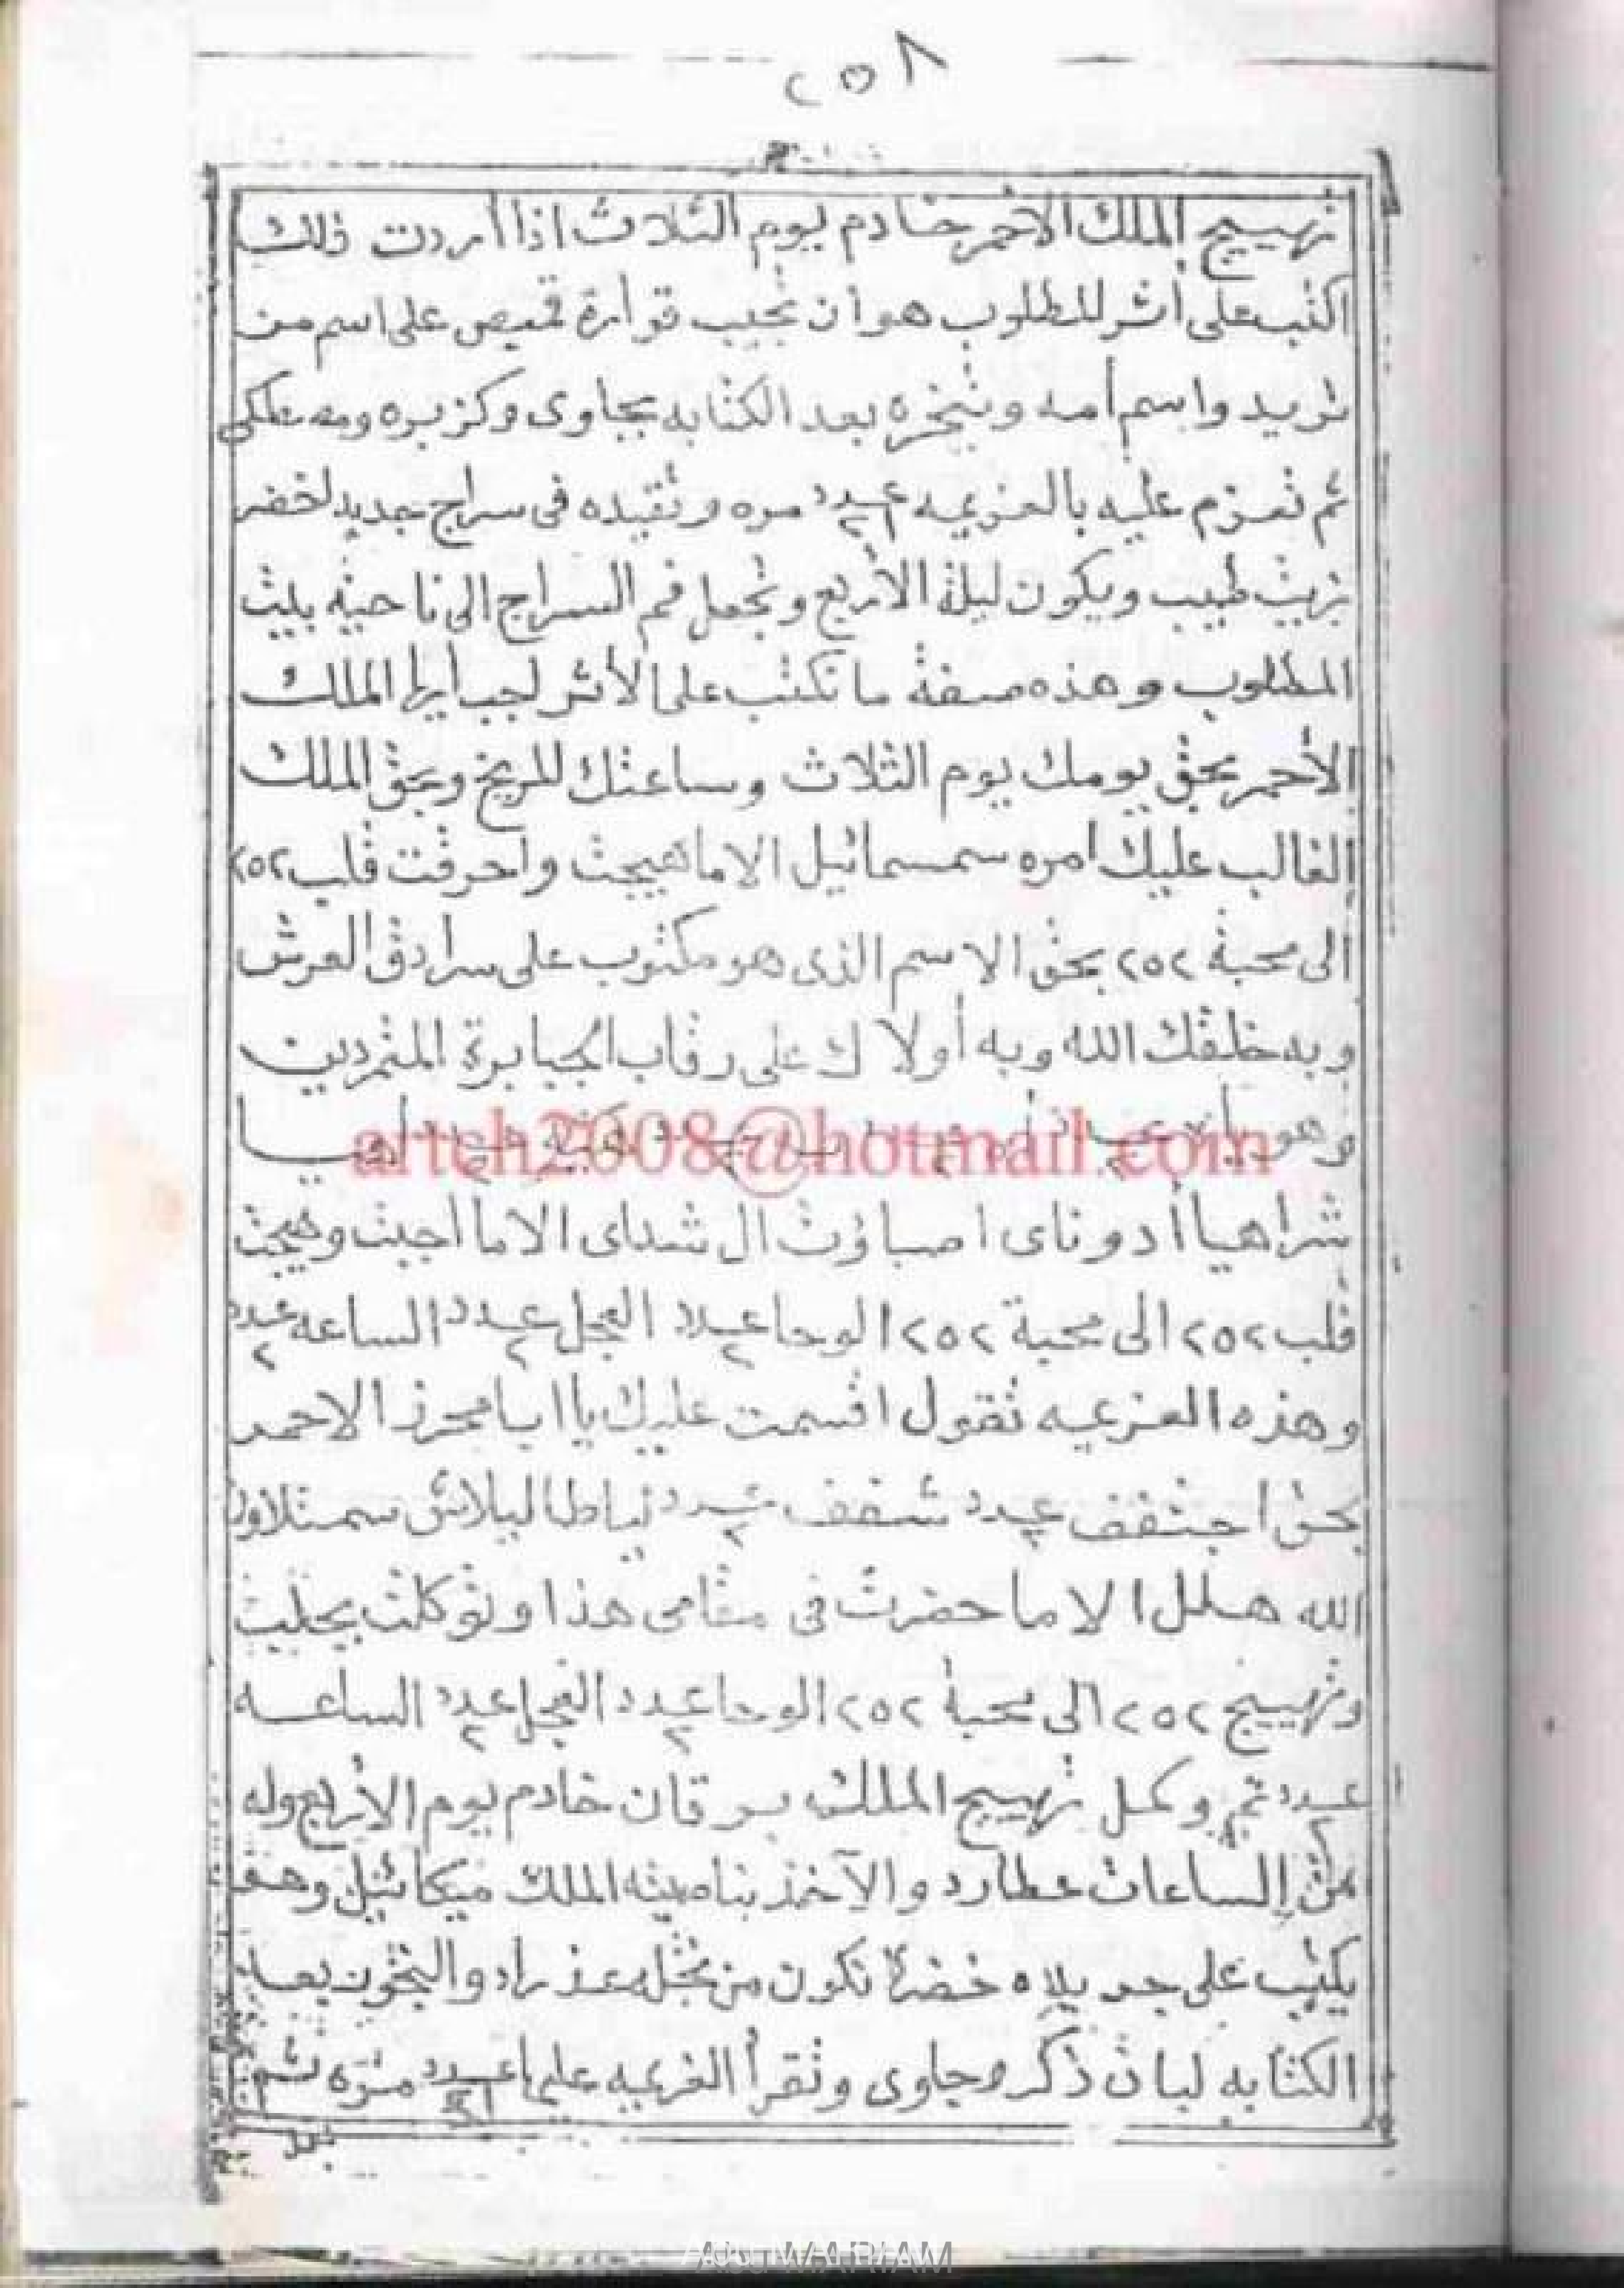 ٢٥٨
تهييج الملك الاحمر خادم يوم الثلاث اذا أردت ذلك
اكتب على أثر المطلوب هو أن تجيب قوارة قميص على اسم من
تريد واسم أمه وتبخره بعد الكتابه بجاوى وكزبره ومصعلكى
ثم تعزم عليه بالعزيمه عدد ٢١ مره وتقيده فى سراج جديد اخضر
بزيت طيب ويكون ليلة الأربع وتجعل فم السراج الى ناحية بيت
المطلوب وهذه صفة ما تكتب على الأثر أجب أيها الملك
الأحمر بحق يومك يوم الثلاث وساعتك المريخ وبحق الملك
الغالب عليك امره سمسمائيل الاما هيجت واحرقت قلب ٢٥٢
الى محبة ٢٥٢ بحق الاسم الذى هو مكتوب على سرادق العرش
وبه خلقك الله وبه أولاك على رقاب الجبابرة المتمردين
وهو اهيا
شراهيا أدوناى اصباؤت ال شداى الاما اجبت وهيجت
قلب ٢٥٢ الى محبة ٢٥٢ الوحا عدد ٢ العجل عدد ٢ الساعه عدد ٢
وهذه العزيمه تقول اقسمت عليك يا ابا محرز الاحمر
بحق اجثقف عدد ٢ شقف عدد ٢ نياطا ليلاش سمتلاول
الله هلل الا ما حضرت فى مقامى هذا وتوكلت بجليت
وتهييج ٢٥٢ الى محبة ٢٥٢ الوحا عدد ٢ العجل عدد ٢ الساعه
عدد ٢ تم وكمل تهييج الملك برقان خادم يوم الأربع وله
من الساعات عطارد والآخذ بناصيته الملك ميكائيل وهو
يكتب على جريده خضرة تكون من نخله عذراء والبخور بعد
الكتابه لبان ذكر وجاوى وتقرأ العزيمه عليها عدد ٢١ مره ثم
arteh2008@hotmail.com
Abu MARIAM